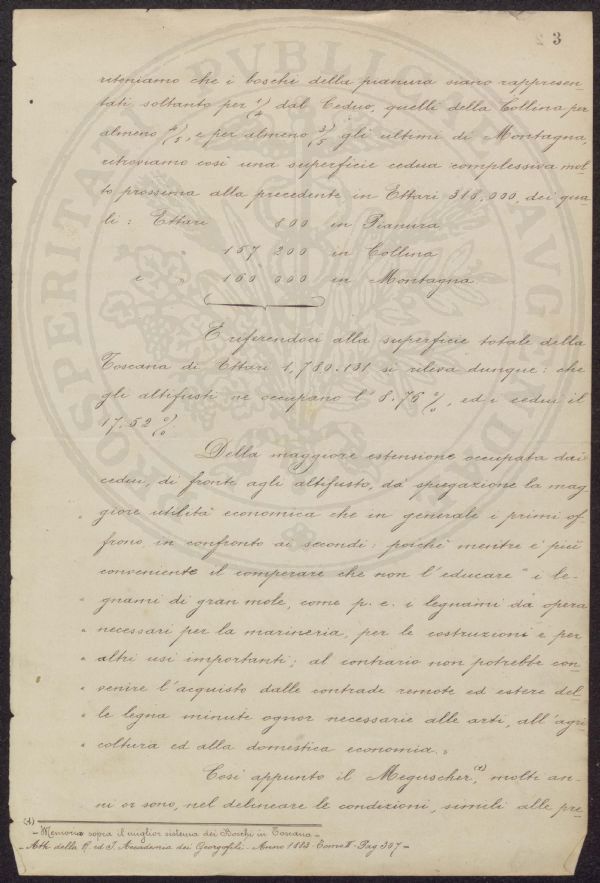 3
riteniamo che i boschi della pianura siano rappresen-
tati soltanto per 1/4 dal Ceduo, quelli della Collina per
almeno 4/5, e per almeno 3/5 gli ultimi di Montagna,
ritroviamo così una superficie cedua complessiva mol-
to prossima alla precedente in Ettari 318,000, dei qua-
li: Ettari 800 in Pianura
" 157 200 in Collina
e " 160 000 in Montagna
E riferendoci alla superficie totale della
Toscana di Ettari 1,780.131 si rileva dunque: che
gli altifusti ne occupano l'8.76%, ed i cedui il
17.52%
Della maggiore estensione occupata dai
cedui, di fronte agli altifusto, dà spiegazione la mag-
giore utilità economica che in generale i primi of-
frono in confronto ai secondi; poichè mentre è più
conveniente il comperare che non l'educare " i le-
" gnami di gran mole, come p. e. i legnami da opera
" necessari per la marineria, per le costruzioni e per
" altri usi importanti; al contrario non potrebbe con-
" venire l'acquisto dalle contrade remote ed estere del-
" le legna minute ognor necessarie alle arti, all'agri-
" coltura ed alla domestica economia. "
Così appunto il Meguscher,(1) molti an-
ni or sono, nel delineare le condizioni, simili alle pre-
(1)
- Memoria sopra il miglior sistema dei Boschi in Toscana -
- Atti della R. ed I. Accademia dei Georgofili - Anno Tomo Pag 307 -
PROSPERITATI PVBLICAE AVGENDAE